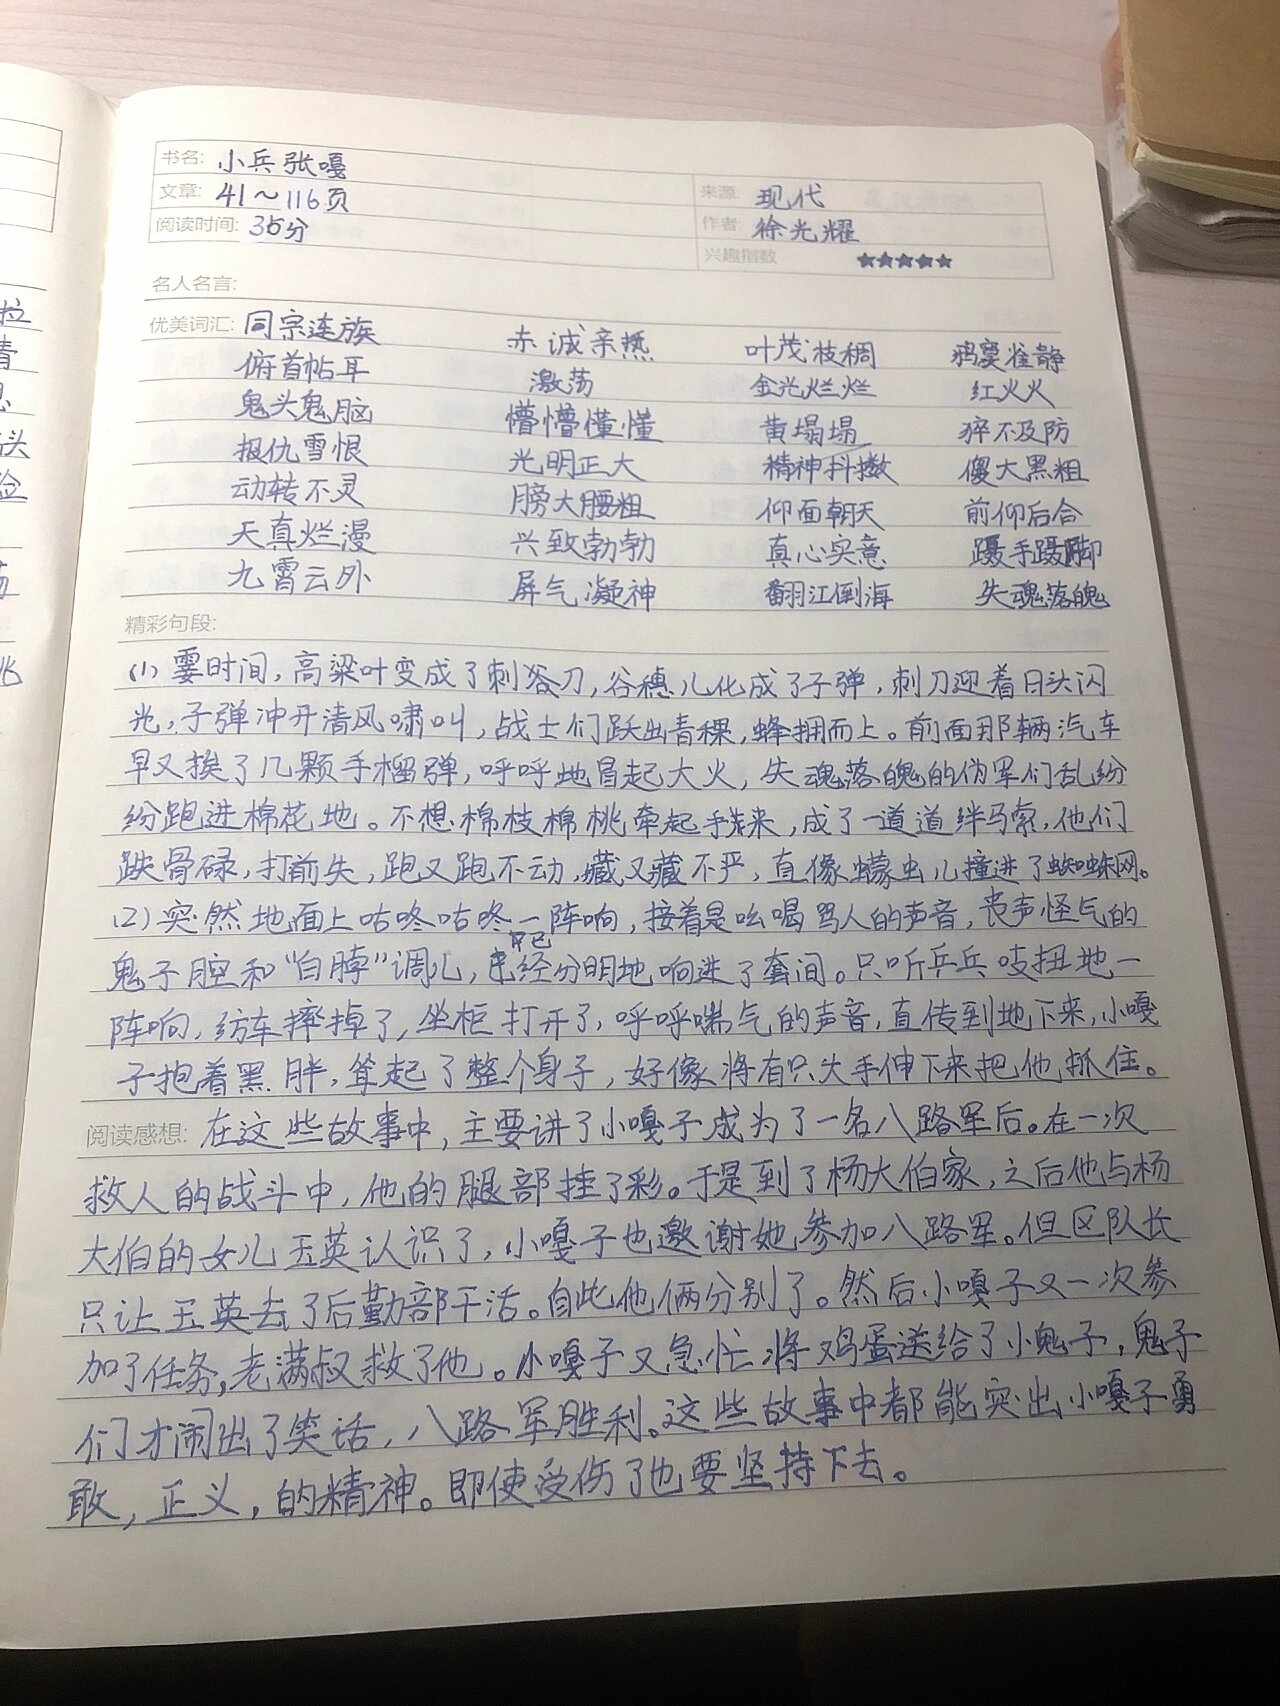 书名: 小兵张嘎
文章: 41～116页 来源: 现代
阅读时间: 35分 作者: 徐光耀
兴趣指数 ★★★★★
名人名言:
优美词汇: 同宗连族 赤诚亲热 叶茂枝稠 鸦窦雀静
俯首帖耳 激荡 金光烂烂 红火火
鬼头鬼脑 懵懵懂懂 黄塌塌 猝不及防
报仇雪恨 光明正大 精神抖擞 傻大黑粗
动转不灵 膀大腰粗 仰面朝天 前仰后合
天真烂漫 兴致勃勃 真心实意 蹑手蹑脚
九霄云外 屏气凝神 翻江倒海 失魂落魄
精彩句段:
(1) 霎时间,高粱叶变成了刺刀,谷穗儿化成了子弹,刺刀迎着日头闪
光,子弹冲开清风啸叫,战士们跃出青稞,蜂拥而上。前面那辆汽车
早又挨了几颗手榴弹,呼呼地冒起大火,失魂落魄的伪军们乱纷
纷跑进棉花地。不想棉枝棉桃牵起手来,成了一道道绊马索,他们
跌骨碌,打前失,跑又跑不动,藏又藏不严,直像蠓虫儿撞进了蜘蛛网。
(2) 突然地面上咕咚咕咚一阵响,接着是吆喝骂人的声音,丧声怪气的
鬼子腔和“白脖”调儿,早已经分明地响进了套间。只听乒乓吱扭地一
阵响,纺车摔掉了,坐柜打开了,呼呼喘气的声音,直传到地下来,小嘎
子抱着黑胖,耸起了整个身子,好像将有只大手伸下来把他抓住。
阅读感想: 在这些故事中,主要讲了小嘎子成为了一名八路军后。在一次
救人的战斗中,他的腿部挂了彩。于是到了杨大伯家,之后他与杨
大伯的女儿玉英认识了,小嘎子也邀谢她参加八路军。但区队长
只让玉英去了后勤部干活。自此他俩分别了。然后小嘎子又一次参
加了任务,老满叔救了他。小嘎子又急忙将鸡蛋送给了小鬼子,鬼子
们才闹出了笑话,八路军胜利。这些故事中都能突出小嘎子勇
敢,正义,的精神。即使受伤了也要坚持下去。